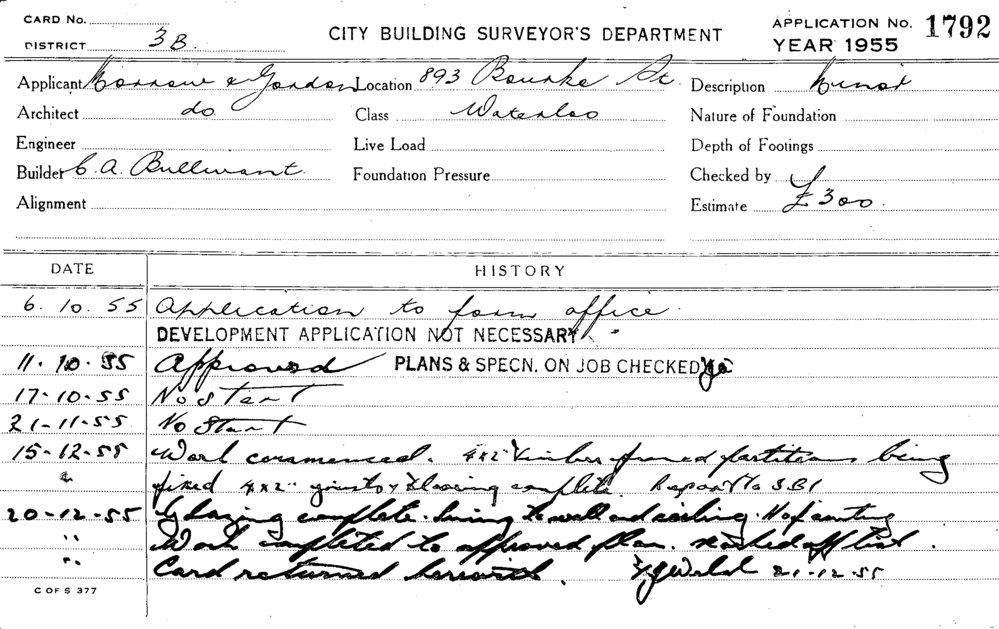 CARD No.
DISTRICT 3B.
CITY BUILDING SURVEYOR'S DEPARTMENT
APPLICATION No. 1792
YEAR 1955
Applicant Morrow & Gordon Location 893 Bourke St. Description Minor
Architect do Class Waterloo Nature of Foundation
Engineer Live Load Depth of Footings
Builder C. A. Bullivant. Foundation Pressure Checked by
Alignment Estimate £300.
DATE HISTORY
6. 10. 55 Application to form office.
DEVELOPMENT APPLICATION NOT NECESSARY
11. 10. 55 Approved PLANS & SPECN. ON JOB CHECKED Yes
17-10-55 No start
21-11-55 No Start
15-12-55 Work commenced. 4x2" timber framed partitions being
" fixed 4x2" joists & flooring complete. Report to SBI
20-12-55 Glazing complete. Lining to wall and ceiling. No painting
" Work completed to approved plan. marked off list.
" Card returned herewith. 21-12-55
C OF S 377